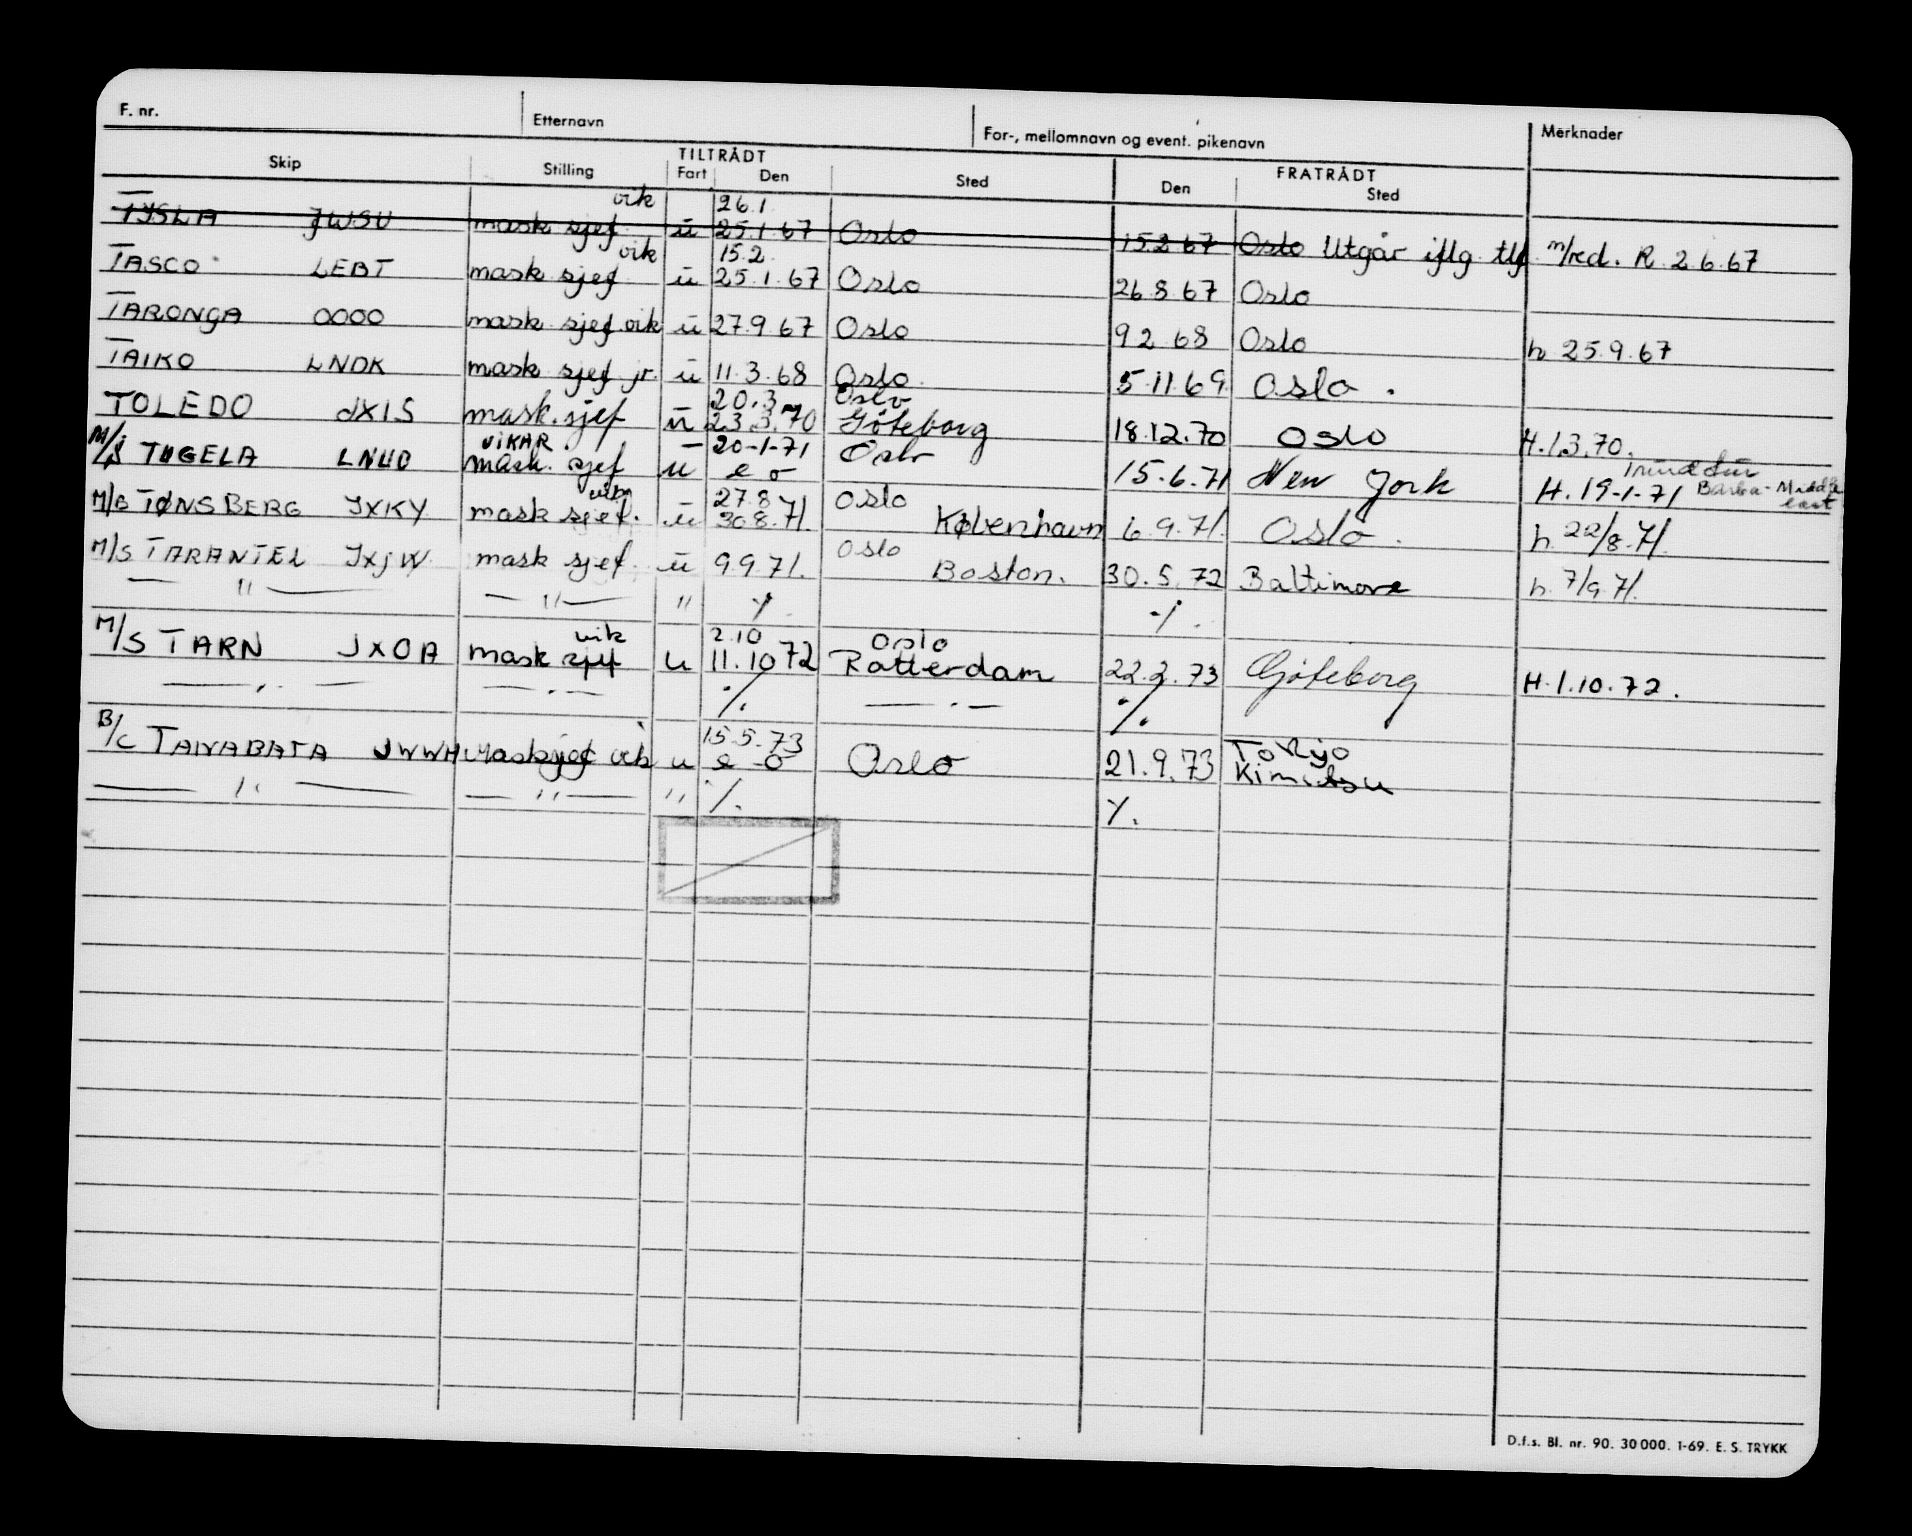 F. nr. Etternavn For-, mellomnavn og event. pikenavn Merknader
TILTRÅDT FRATRÅDT
Skip Stilling Fart Den Sted Den Sted
vik 26.1
TYSLA JWSU mask sjef ü 25.1.67 Oslo 15.2 67 Oslo Utgår iflg. tlf. m/red. R. 2.6.67
vik 15.2
TASCO LEBT mask sjef ü 25.1.67 Oslo 26.8 67 Oslo
TARONGA OOOO mask sjef vik ü 27.9.67 Oslo 9 2 68 Oslo h 25.9.67
TAIKO LNDK mask sjef jr. ü 11.3.68 Oslo. 5.11.69 Oslo.
20.3 Oslo
TOLEDO JXIS mask.sjef ü 23.3.70 Göteborg 18.12.70 Oslo H.1.3.70.
VIKAR 20-1-71
M/S TUGELA LNUD mask. sjef u e o Oslo 15.6.71 New York H. 19-1-71 Barba-Middle east
vik 27.8 Oslo
M/S TØNSBERG JXKY mask sjef. ü 30.8.71. København 6.9.71. Oslo. h. 22/8.71.
M/S TARANTEL JXJW mask sjef ü 9.9.71. Oslo Boston. 30.5.72 Baltimore h. 7/9 71.
— " — — " — " ⁒ ⁒
vik 2.10 Oslo
M/S TARN JXOA mask sjef u 11.10 72 Rotterdam 22.2.73 Gøteborg H.1.10.72.
— " — — " — ⁒ — " — ⁒
15.5.73 Tokyo
B/C TANABATA JWWH Masksjef vik u e o Oslo 21.9.73 Kimitsu
— " — — " — " ⁒ ⁒
D.f.s. Bl. nr. 90. 30 000. 1-69. E. S. TRYKK